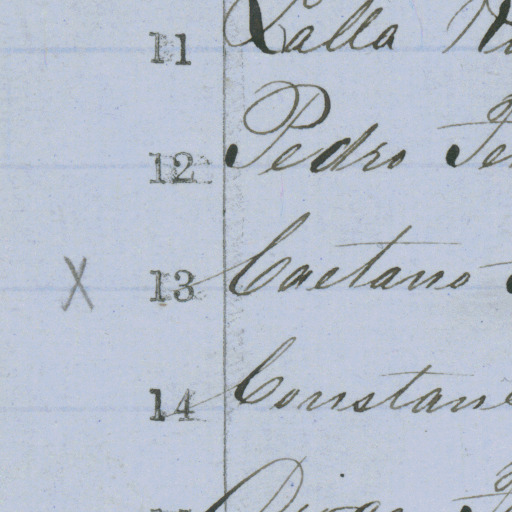 11 Lalla
12 Pedro
X 13 Caetano
14 Constan